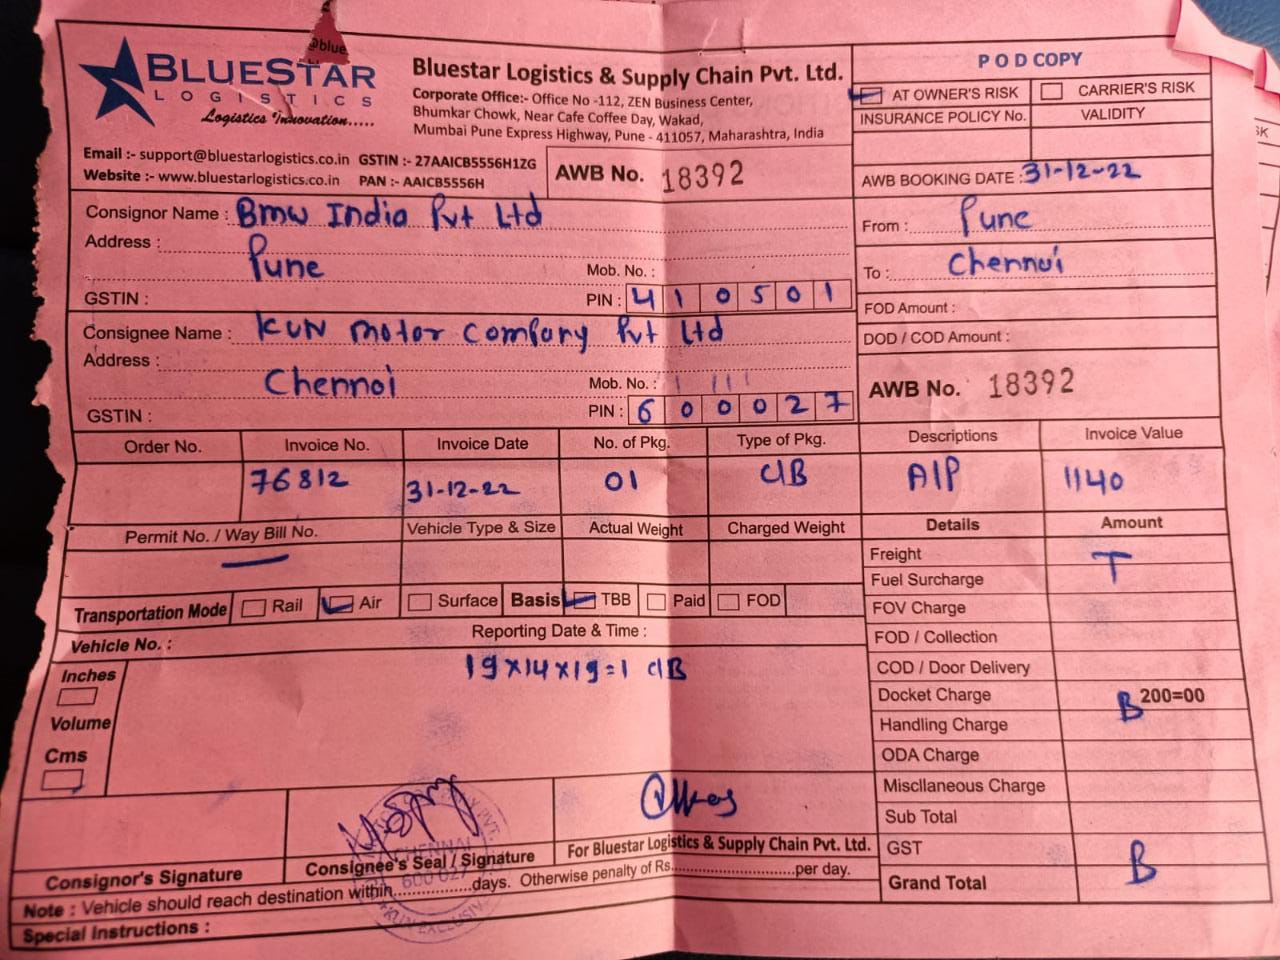 @blue
BLUESTAR
LOGISTICS
Logistics Innovation.....
Bluestar Logistics & Supply Chain Pvt. Ltd.
Corporate Office:- Office No -112, ZEN Business Center,
Bhumkar Chowk, Near Cafe Coffee Day, Wakad,
Mumbai Pune Express Highway, Pune - 411057, Maharashtra, India
Email :- support@bluestarlogistics.co.in GSTIN :- 27AAICB5556H1ZG
Website :- www.bluestarlogistics.co.in PAN :- AAICB5556H
AWB No. 18392
POD COPY
AT OWNER'S RISK CARRIER'S RISK
INSURANCE POLICY No. VALIDITY
AWB BOOKING DATE : 31-12-22
Consignor Name : Bmw India Pvt Ltd
Address : Pune
Mob. No. :
GSTIN : PIN : 410501
From : Pune
To : Chennai
FOD Amount :
DOD / COD Amount :
Consignee Name : KUN motor Company Pvt Ltd
Address : Chennai
Mob. No. :
GSTIN : PIN : 600027
AWB No. 18392
Order No. Invoice No. Invoice Date No. of Pkg. Type of Pkg. Descriptions Invoice Value
76812 31-12-22 01 C/B A/P 1140
Permit No. / Way Bill No. Vehicle Type & Size Actual Weight Charged Weight Details Amount
Freight T
Fuel Surcharge
Transportation Mode Rail Air Surface Basis TBB Paid FOD
FOV Charge
Vehicle No. : Reporting Date & Time :
FOD / Collection
Inches
19×14×19=1 C/B
COD / Door Delivery
Docket Charge B 200=00
Volume
Handling Charge
Cms
ODA Charge
Miscllaneous Charge
Sub Total
GST
Grand Total B
Consignor's Signature
Consignee's Seal / Signature
For Bluestar Logistics & Supply Chain Pvt. Ltd.
CHENNAI
600 027
Note : Vehicle should reach destination within...............days. Otherwise penalty of Rs..............................per day.
Special Instructions :